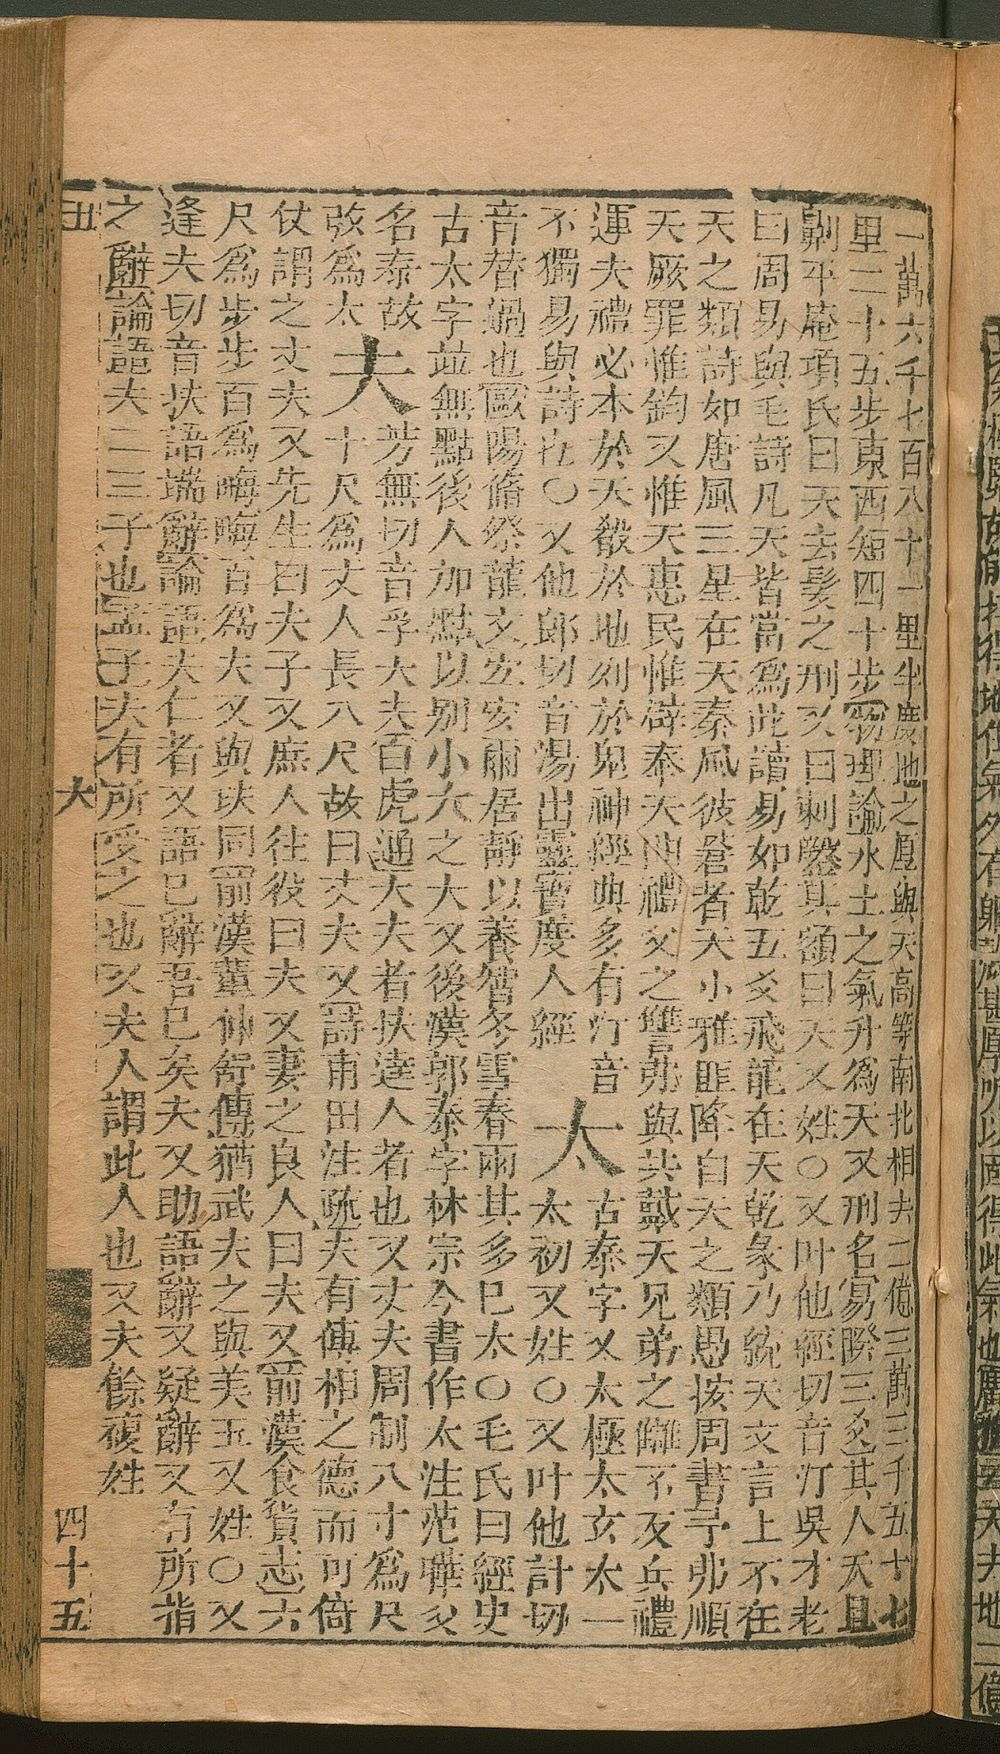 一萬六千七百八十一里半度地之厚與天高等南北相去二億三萬三千五十七
里二十五步東西短四十步物理論水土之氣升爲天又刑名易睽三爻其人天且
劓平庵項氏曰天去髮之刑又曰刺鑿其額曰天又姓○又叶他經切音汀吳才老
曰周易與毛詩凡天皆當爲此讀易如乾五爻飛龍在天乾彖乃統天文言上不在
天之類詩如唐風三星在天秦風彼蒼者天小雅匪降自天之類愚按周書予弗順
天厥罪惟鈞又惟天惠民惟辟奉天曲禮父之讐弗與共戴天兄弟之讎不反兵禮
運夫禮必本於天殽於地列於鬼神經典多有汀音 太 古泰字又太極太玄太一
不獨易與詩也○又他郎切音湯出靈寶度人經 太初又姓○又叶他計切
音替過也歐陽脩祭龍文宏安爾居靜以養智冬雪春雨其多已太○毛氏曰經史
古太字竝無點後人加點以別小大之大又後漢郭泰字林宗今書作太注范曄父
名泰故
改爲太 夫 芳無切音孚大夫白虎通大夫者扶達人者也又丈夫周制八寸爲尺
十尺爲丈人長八尺故曰丈夫又詩甫田注疏夫有傳相之德而可倚
仗謂之丈夫又先生曰夫子又庶人往役曰夫又妻之良人曰夫又前漢食貨志六
尺爲步步百爲畮畮百爲夫又與玞同前漢董仲舒傳猶武夫之與美玉又姓○又
逢夫切音扶語端辭論語夫仁者又語已辭吾已矣夫又助語辭又疑辭又有所指
之辭論語夫二三子也孟子夫有所受之也又夫人謂此人也又夫餘複姓
丑 大 四十五